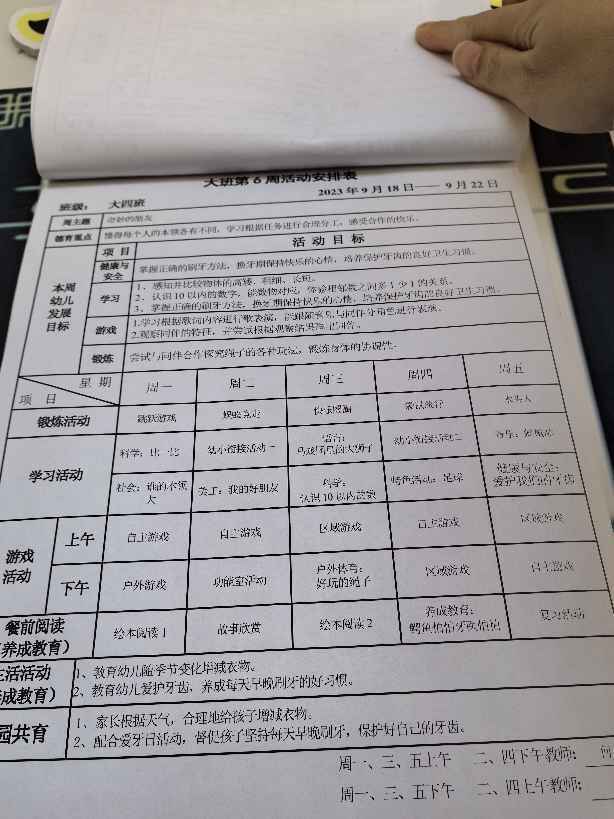 大班第6周活动安排表
班级： 大四班 2023年9月18日—— 9月22日
周主题 奇妙的朋友
德育重点 懂得每个人的本领各有不同，学习根据任务进行合理分工，感受合作的快乐。
本周幼儿发展目标 项目 活动目标
健康与安全 掌握正确的刷牙方法，换牙期保持快乐的心情，培养保护牙齿的良好卫生习惯。
学习 1、感知并比较物体的高矮、粗细、长短。
2、认识10以内的数字，能数物对应，体验理邻数之间多1少1的关系。
3、掌握正确的刷牙方法，换牙期保持快乐的心情，培养保护牙齿的良好卫生习惯。
游戏 1.学习根据歌词内容进行歌表演，能跟随音乐与同伴分角色进行表演。
2.观察同伴的特征，并尝试根据观察结果作出回答。
锻炼 尝试与同伴合作探究绳子的各种玩法，锻炼身体的协调性。
星期 项目 周一 周二 周三 周四 周五
锻炼活动 跳跃游戏 蜈蚣竞走 木头人
学习活动 科学：比一比 幼小衔接活动一 语言： 幼小衔接活动二
社会：谁的本领大 美工：我的好朋友 科学：认识10以内的数 特色活动：足球 健康与安全：爱护我们的牙齿
游戏活动 上午 自主游戏 自主游戏 区域游戏 自主游戏 区域游戏
下午 户外游戏 功能室活动 户外体育：好玩的绳子 区域游戏 自主游戏
餐前阅读（养成教育） 绘本阅读1 故事欣赏 绘本阅读2 养成教育：鳄鱼怕怕牙医怕怕 复习活动
生活活动
成教育） 1、教育幼儿随季节变化增减衣物。
2、教育幼儿爱护牙齿，养成每天早晚刷牙的好习惯。
园共育 1、家长根据天气，合理地给孩子增减衣物。
2、配合爱牙日活动，督促孩子坚持每天早晚刷牙，保护好自己的牙齿。
周一、三、五上午 二、四下午教师： 何
周一、三、五下午 二、四上午教师：